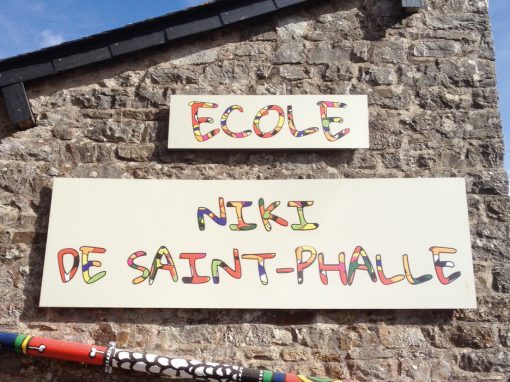 ECOLE
NIKI
DE SAINT-PHALLE